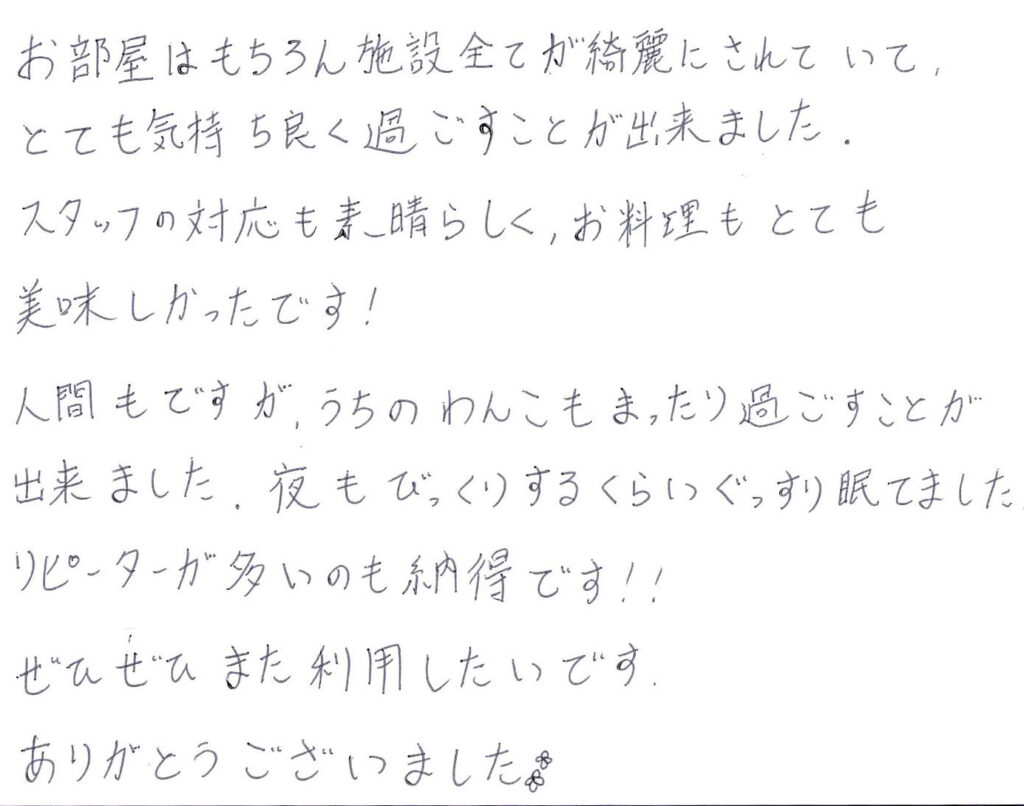 お部屋はもちろん施設全てが綺麗にされていて、
とても気持ち良く過ごすことが出来ました。
スタッフの対応も素晴らしく、お料理もとても
美味しかったです!
人間もですが、うちのわんこもまったり過ごすことが
出来ました。夜もびっくりするくらいぐっすり眠てました。
リピーターが多いのも納得です!!
ぜひぜひまた利用したいです。
ありがとうございました